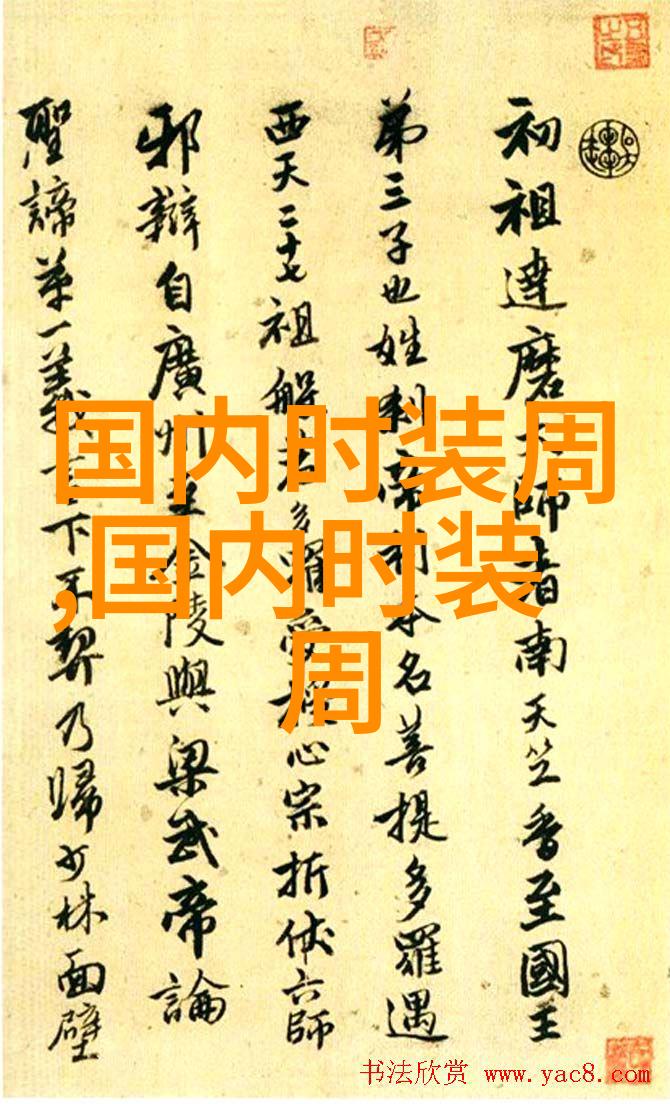 初祖達磨大師者南天竺香至國王
第三子也姓刹帝利本名菩提多羅遇
西天二十七祖般若多羅受心宗折伏六師
邪辯自廣州至金陵與梁武帝論
聖諦第一義言下不契乃歸少林面壁
国内时装周
,国内时装
周
书法欣赏 www.yac8.com